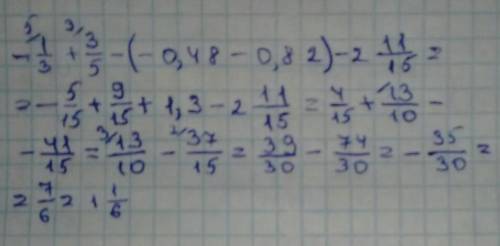 - 1/3 + 3/5 - (- 0,48 - 0,82) - 2 11/15 =
= - 5/15 + 9/15 + 1,3 - 2 11/15 = 4/15 + 13/10 -
- 41/15 = 13/10 - 37/15 = 39/30 - 74/30 = - 35/30 =
= 7/6 = 1 1/6